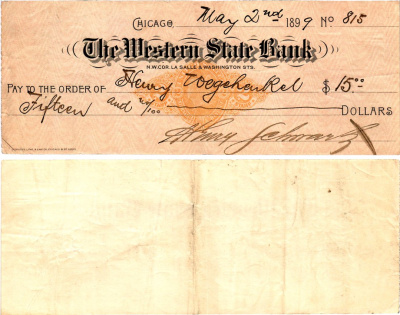 CHICAGO, May 2nd 1899 No 815
The Western State Bank
N.W. COR. LA SALLE & WASHINGTON STS.
PAY TO THE ORDER OF Henry $15.00
Fifteen and no/100 DOLLARS
Henry Schwartz